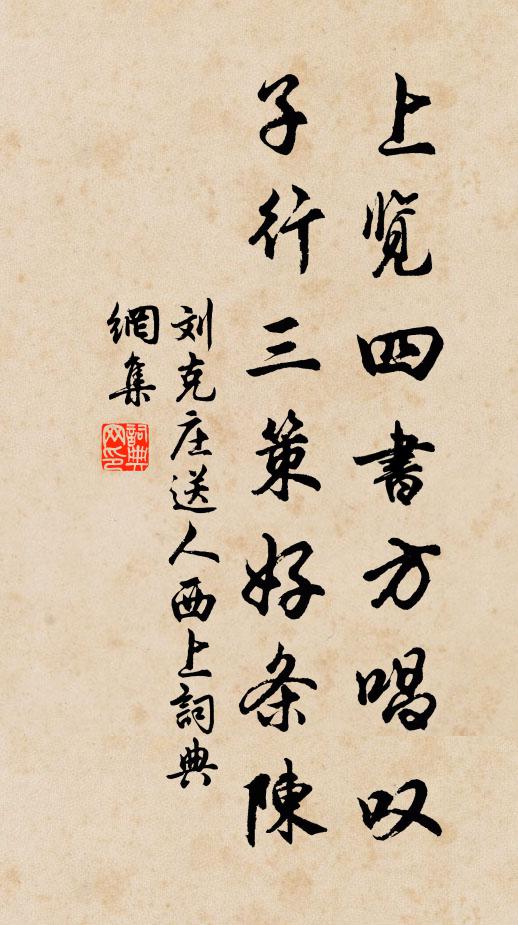 上览四書方唱叹
子行三策好条陳
刘克庄送人西上詞典
網集
詞典
网印